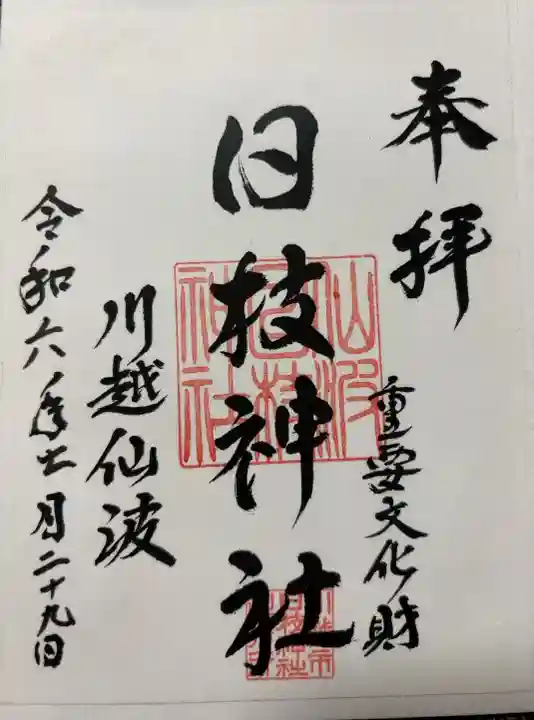 奉拝
重要文化財
日枝神社
仙波
日枝
神社
川越仙波
令和六年十一月二十九日